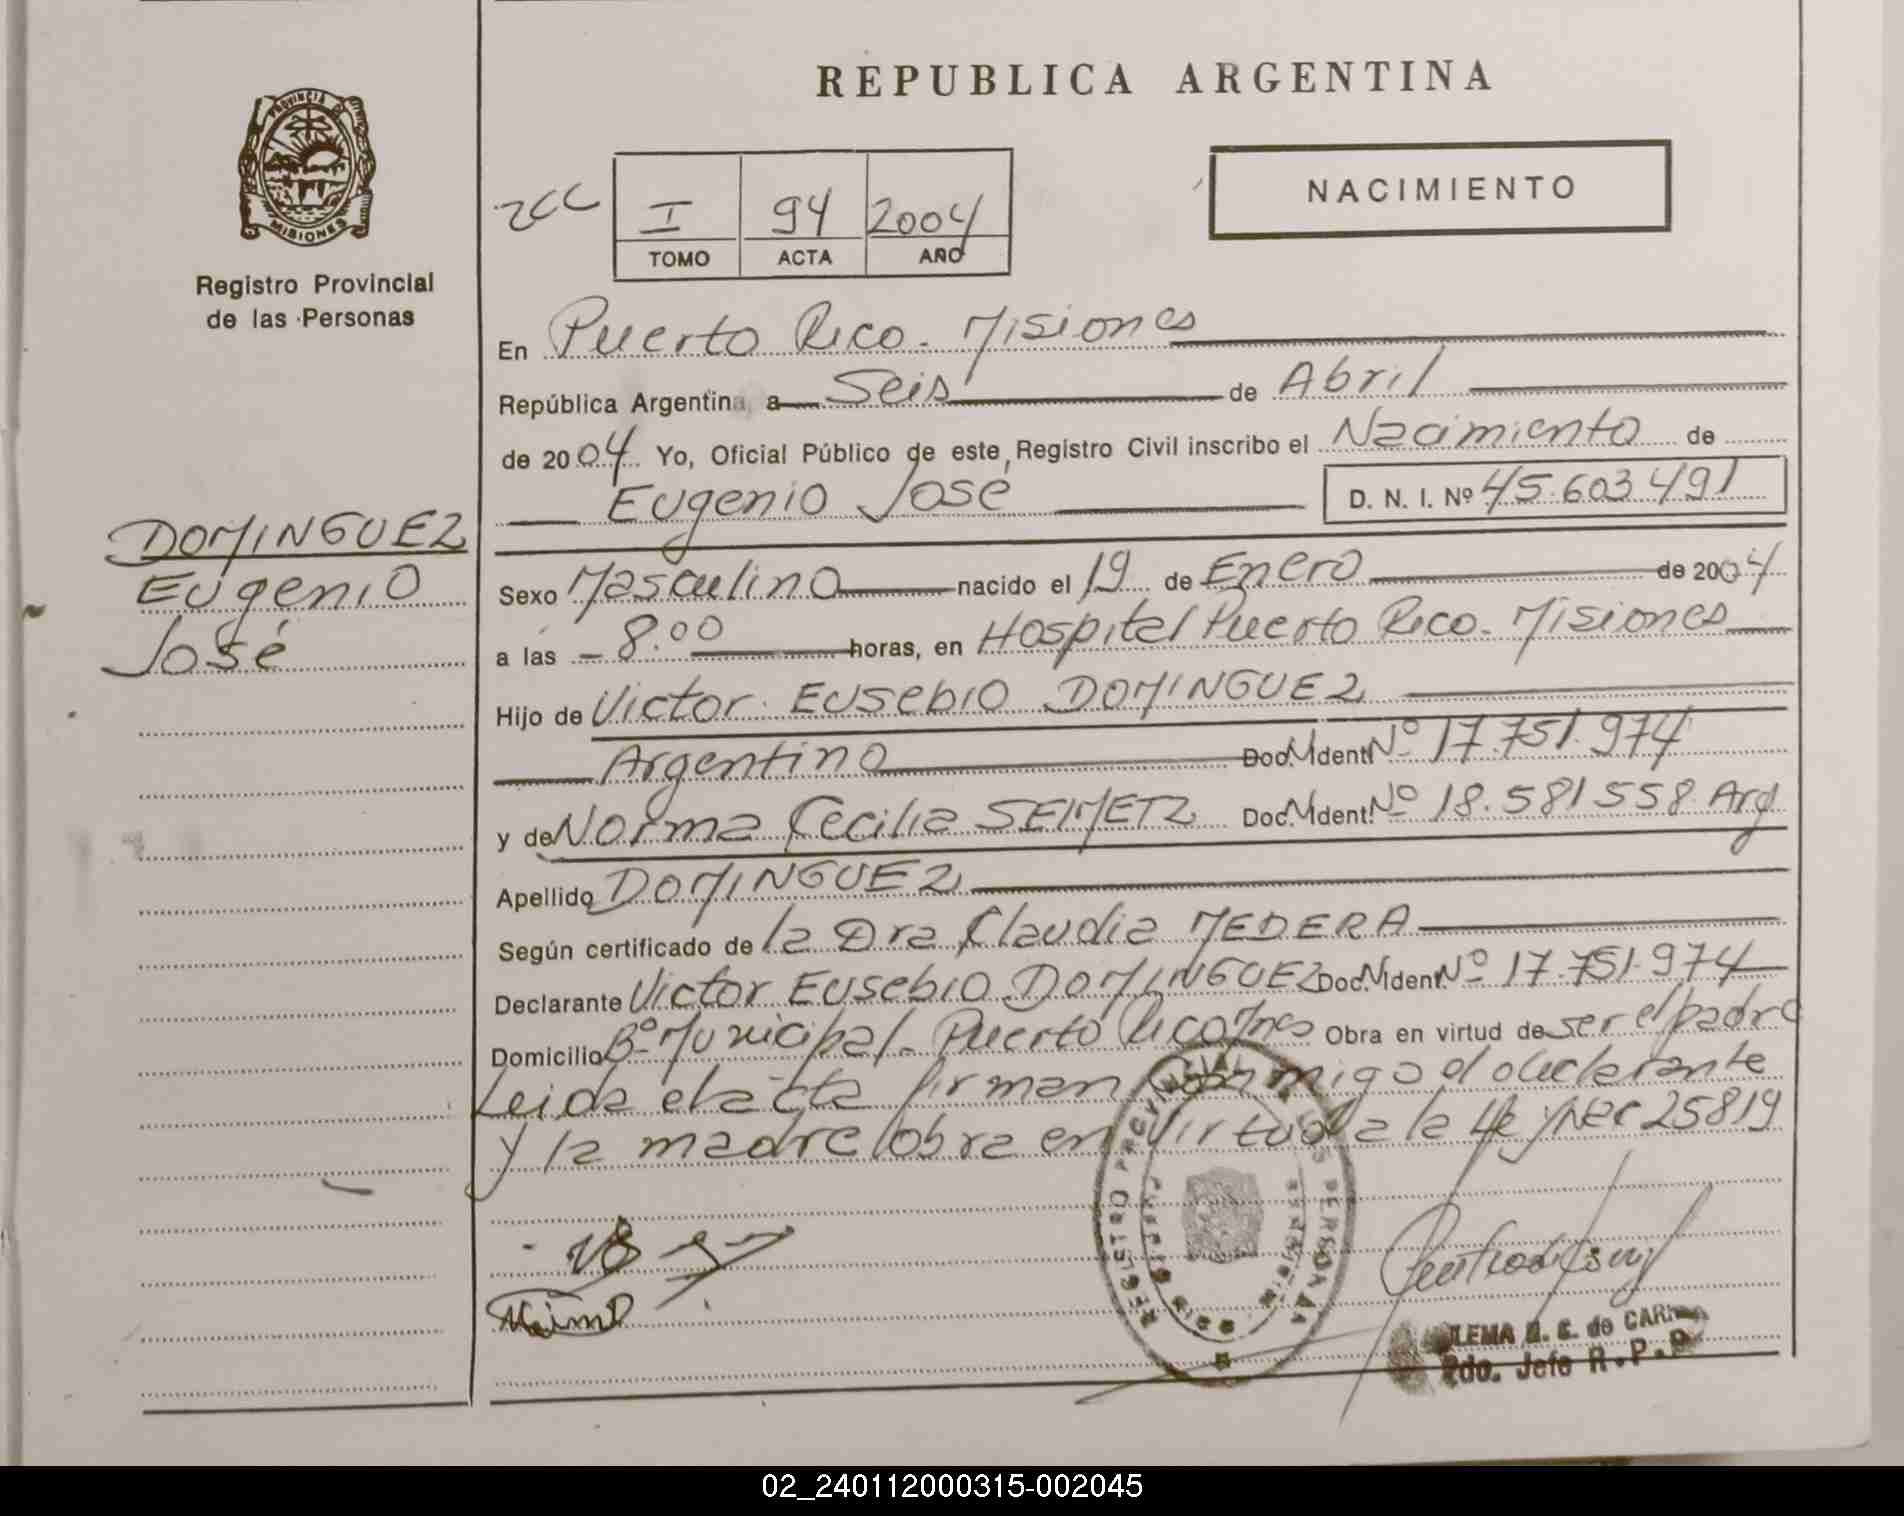 REPUBLICA ARGENTINA
NACIMIENTO
PROVINCIA DE MISIONES
Registro Provincial
de las Personas
I 94 2004
TOMO ACTA AÑO
En Puerto Rico. Misiones
República Argentina, a Seis de Abril
de 2004 Yo, Oficial Público de este Registro Civil inscribo el Nacimiento de
Eugenio José D. N. I. Nº 45.603.491
DOMINGUEZ
Eugenio
José
Sexo Masculino nacido el 19 de Enero de 2004
a las 8.00 horas, en Hospital Puerto Rico. Misiones
Hijo de Victor Eusebio DOMINGUEZ
Argentino Doc. Ident. Nº 17.751.974
y de Norma Cecilia SEIMETZ Doc. Ident. Nº 18.581558 Arg
Apellido DOMINGUEZ
Según certificado de la Dra Claudia MEDERA
Declarante Victor Eusebio DOMINGUEZ Doc. Ident. Nº 17.751.974
Domicilio Bº Municipal. Puerto Rico Mnes Obra en virtud de ser el padre
Leida el acta firman conmigo el declarante
y la madre obra en virtud a la Ley Nac 25819
REGISTRO PROVINCIAL DE LAS PERSONAS
LEMA D. E. de CAR
Jefe R.P.P
02_240112000315-002045